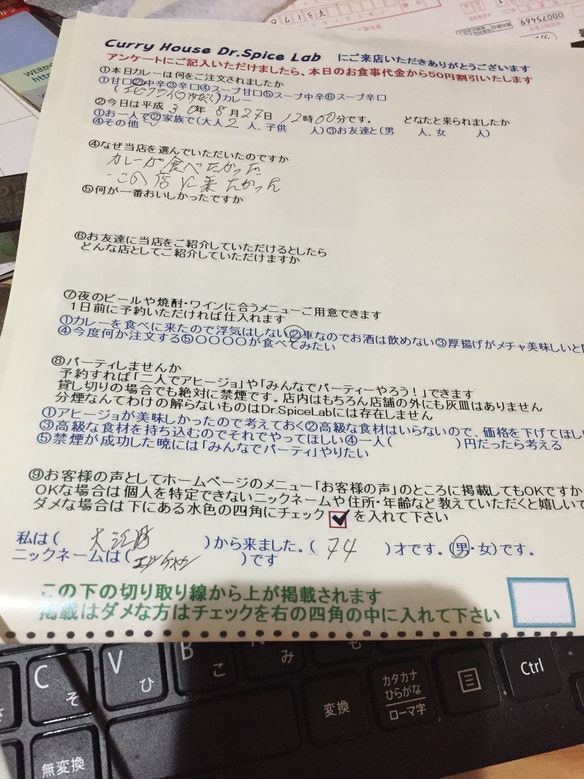 Curry House Dr.Spice Lab にご来店いただきありがとうございます
アンケートにご記入いただけましたら、本日のお食事代金から50円割引いたします
①本日カレーは何をご注文されましたか
①甘口②中辛③辛口④スープ甘口⑤スープ中辛⑥スープ辛口
カレー
②今日は平成 30年 8月27日 12時00分です。 どなたと来られましたか
①お一人で②ご家族で(大人 2 人、子供 人)③お友達と(男 人、女 人)
④その他
④なぜ当店を選んでいただいたのですか
カレーが食べたかった
この店に来たかった
⑤何が一番おいしかったですか
⑥お友達に当店をご紹介していただけるとしたら
どんな店としてご紹介していただけますか
⑦夜のビールや焼酎・ワインに合うメニューご用意できます
1日前に予約いただければ仕入れます
①カレーを食べに来たので浮気はしない②車なのでお酒は飲めない③厚揚げがメチャ美味しいと
④今度何か注文する⑤○○○○が食べてみたい
⑧パーティしませんか
予約すれば「二人でアヒージョ」や「みんなでパーティーやろう!」できます
貸し切りの場合でも絶対に禁煙です。店内はもちろん店舗の外にも灰皿はありません
分煙なんてわけの解らないものはDr.SpiceLabには存在しません
①アヒージョが美味しかったので考えておく②高級な食材はいらないので、価格を下げてほしい
③高級な食材を持ち込むのでそれでやってほしい④一人( )円だったら考える
⑤禁煙が成功した暁には「みんなでパーティ」やりたい
⑨お客様の声としてホームページのメニュー「お客様の声」のところに掲載してもOKですか
OKな場合は個人を特定できないニックネームや住所・年齢など教えていただくと嬉しいで
ダメな場合は下にある水色の四角にチェック を入れて下さい
私は( )から来ました。( 74 )才です。(男・女)です。
ニックネームは( )です
この下の切り取り線から上が掲載されます
掲載はダメな方はチェックを右の四角の中に入れて下さい
C そ
V ひ
B こ
み
も
無変換
変換
カタカナ
ひらがな
ローマ字
Ctrl
00075469